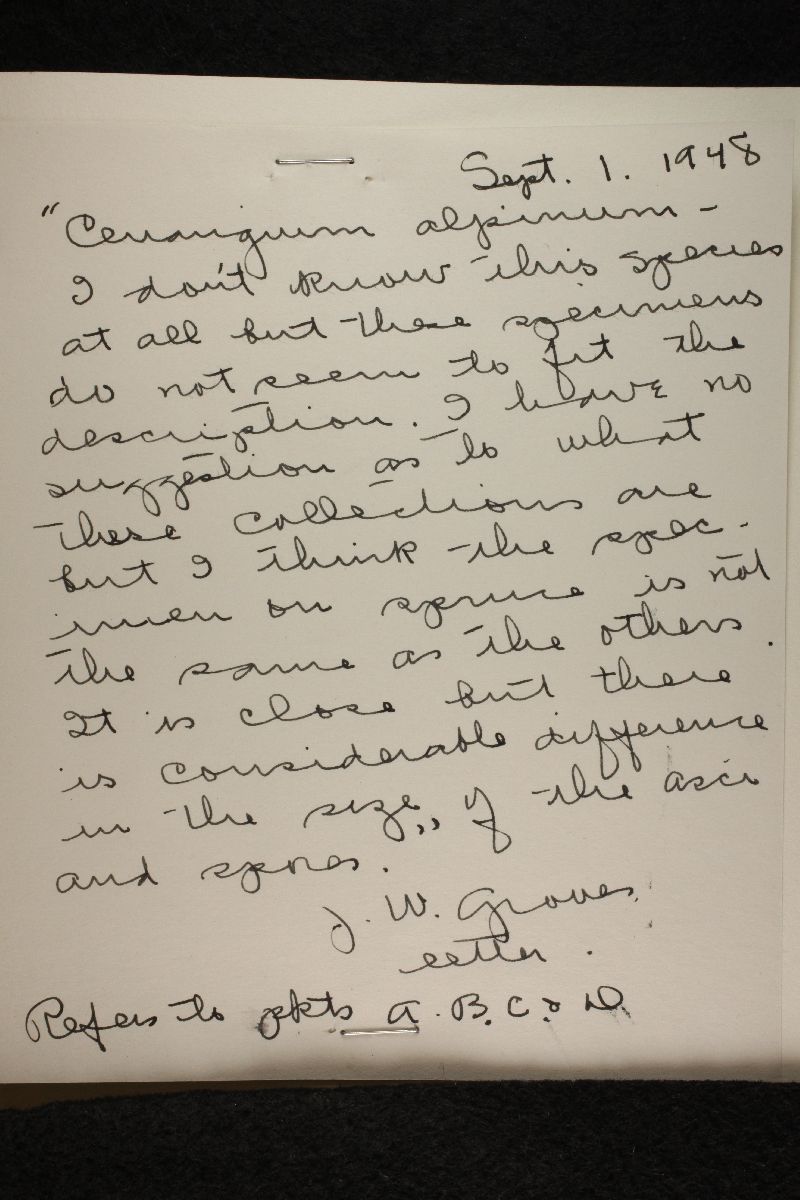 Sept. 1. 1948
"Cenangium alpinum -
I don't know this species
at all but these specimens
do not seem to fit the
description. I have no
suggestion as to what
these collections are
but I think the spec-
imen on spruce is not
the same as the others.
It is close but there
is considerable difference
in the size,, of the asci
and spores.
J. W. Groves
letter.
Refers to pkts A. B. C. & D.